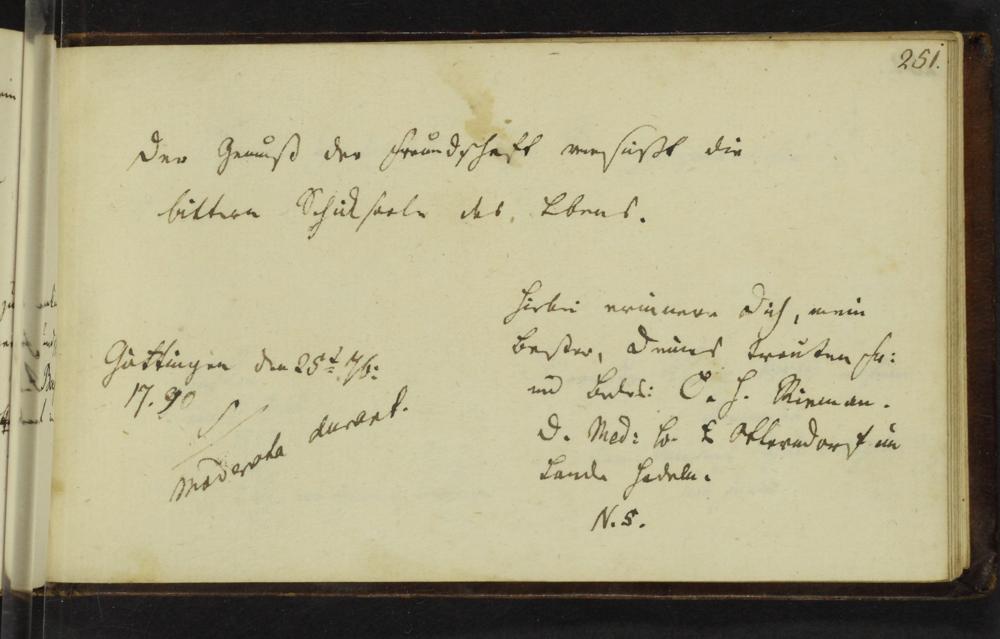 251.
Der Genuß der Freundschaft versüßt die
bittern Schiksaale des Lebens.
Göttingen den 25t 7b:
17.90
Moderata durant.
Hiebei erinnere Dich, mein
Bester, Deines trauten Fr:
und Brdrs: H. Nieman.
D. Med: Otterndorf im
Lande Hadeln.
N. S.